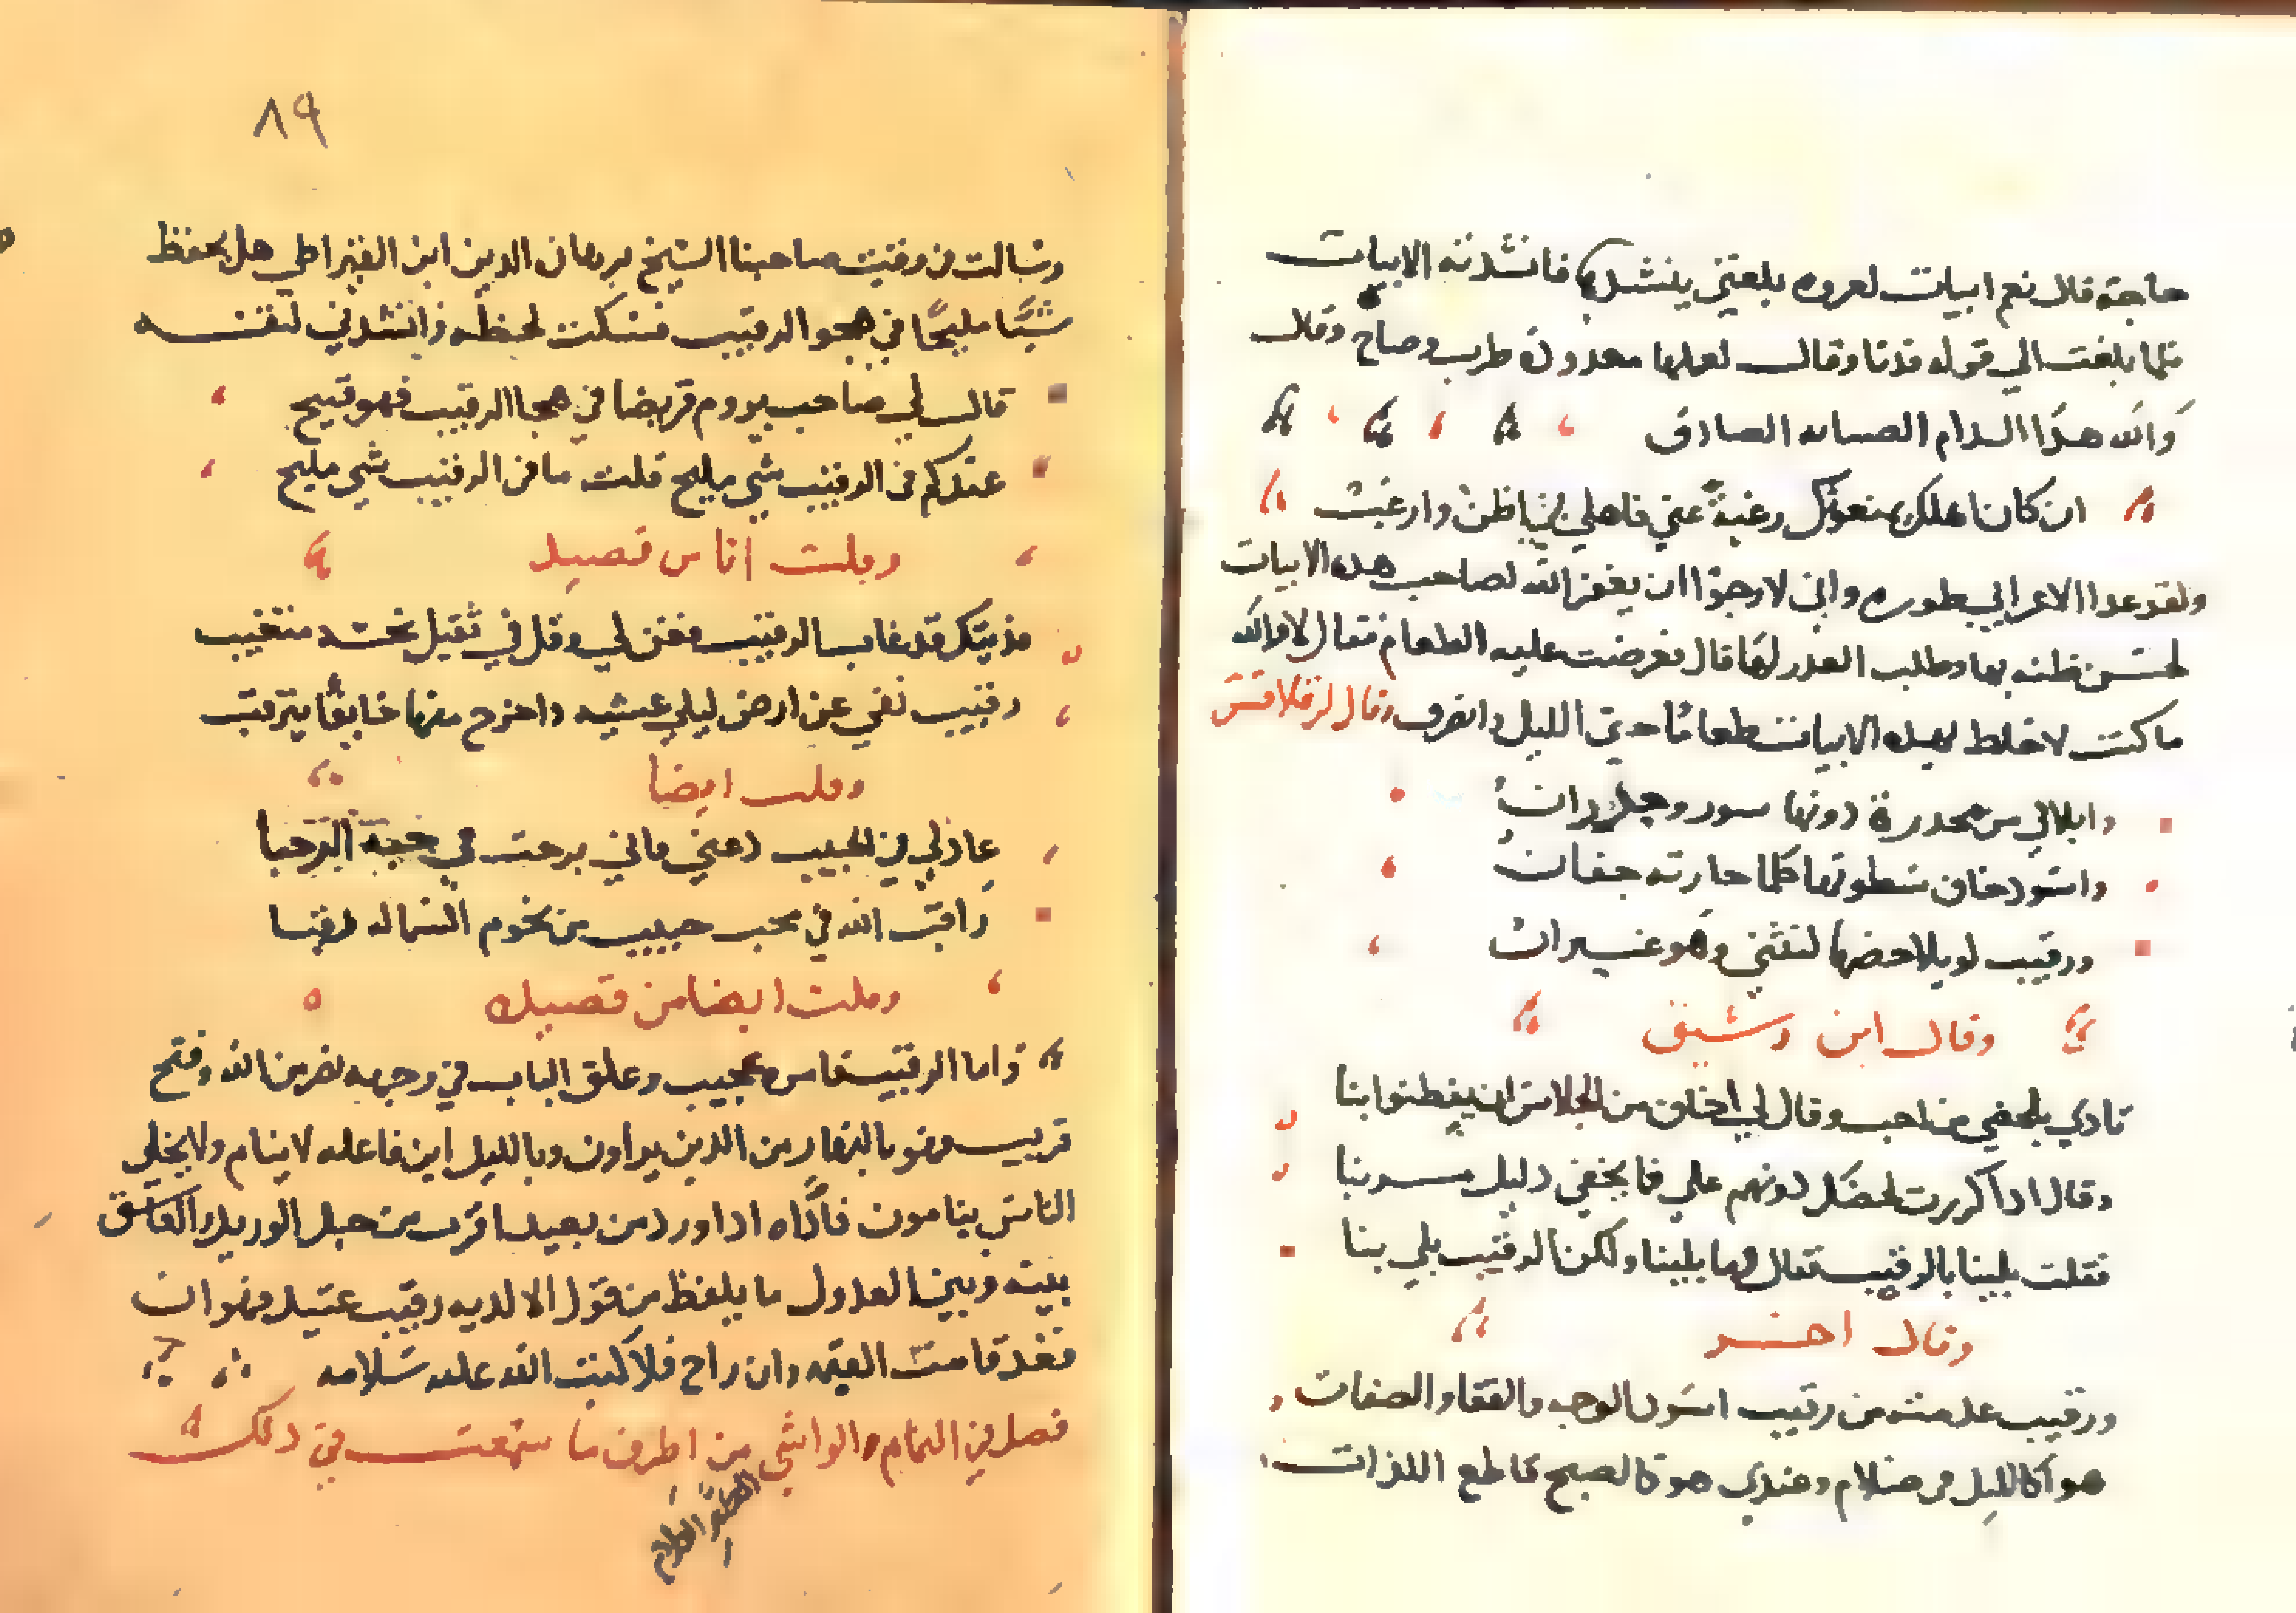 حاجة قال نعم ابيات لعروه بلغني ينشدها فانشدته الابيات
فلما بلغت الي قوله فدنا وقال لعلها معذورة طرب وصاح وقال
والله هذا الدايم الصبابه الصادق
ان كان اهلك يمنعونك رغبة عني فاهلي بي اظن وارغبت
ولقد عدا الاعرابي طوره واني لارجوا ان يغفر الله لصاحب هذه الابيات
لحسن ظنه بها وطلب العذر لها قال فعرضت عليه الطعام فقال لا والله
ما كنت لاخلط بهذه الابيات طعاما حتي الليل وانصرف وقال لزقلاقش
وابلائي من محدرة دونها سور وجدرات
واسود خاف سطوتها كلما حارته جفات
ورقيب لو يلاحضها لنثني وهو غيرات
وقال ابن رشيق
تاذي بلحضي من احب وقال لي اخاف من الجلاس ان يفطنوا بنا
وقال اذا كررت لحضك دونهم علي فما يخفي دليل مريبنا
فقلت بلينا بالرقيب فقال ما بلينا ولكن الرقيب بلي بنا
وقال اخر
ورقيب عدمته من رقيب اسود الوجه والقفا والصفات
هو كالليل في ضلام وعندي هو كالصبح قاطع اللذات
٨٩
وسالت من وقتي صاحبنا الشيخ برهان الدين ابن القيراطي هل يحفظ
شيًا مليحًا في هجو الرقيب فسكت لحظه وانشدني لنفسه
قال لي صاحب يروم قريضا في هجا الرقيب فهو قبيح
عندكم في الرقيب شي مليح قلت ما في الرقيب شي مليح
وقلت انا من قصيد
فديتك قد غاب الرقيب فغن لي وقل في ثقيل تحته متغيب
رقيب نفي عن ارض ليلي عشيه واخرج منها خايفًا يترقب
وقلت ايضا
عاذلي في الحبيب دعني فاني برحت في حبه البرحبا
راقب الله في محب حبيب من نجوم السما له رقبا
وقلت ايضا من قصيده
واما الرقيب فامره عجيب وغلق الباب في وجهه نصر من الله وفتح
قريب وهو بالنهار من الذين يراون وبالليل ابن فاعله لا ينام ولا يخلي
الناس ينامون فاذاه اذا ورد من بعيد اقرب من حبل الوريد العاشق
بينه وبين العذول ما يلفظ من قول الا لديه رقيب عتيد فهو ان
قعد قامت القيمه وان راح فلا كتبت الله عليه سلامه
فصل في النمام والواشي من اطرف ما سمعت في ذلك